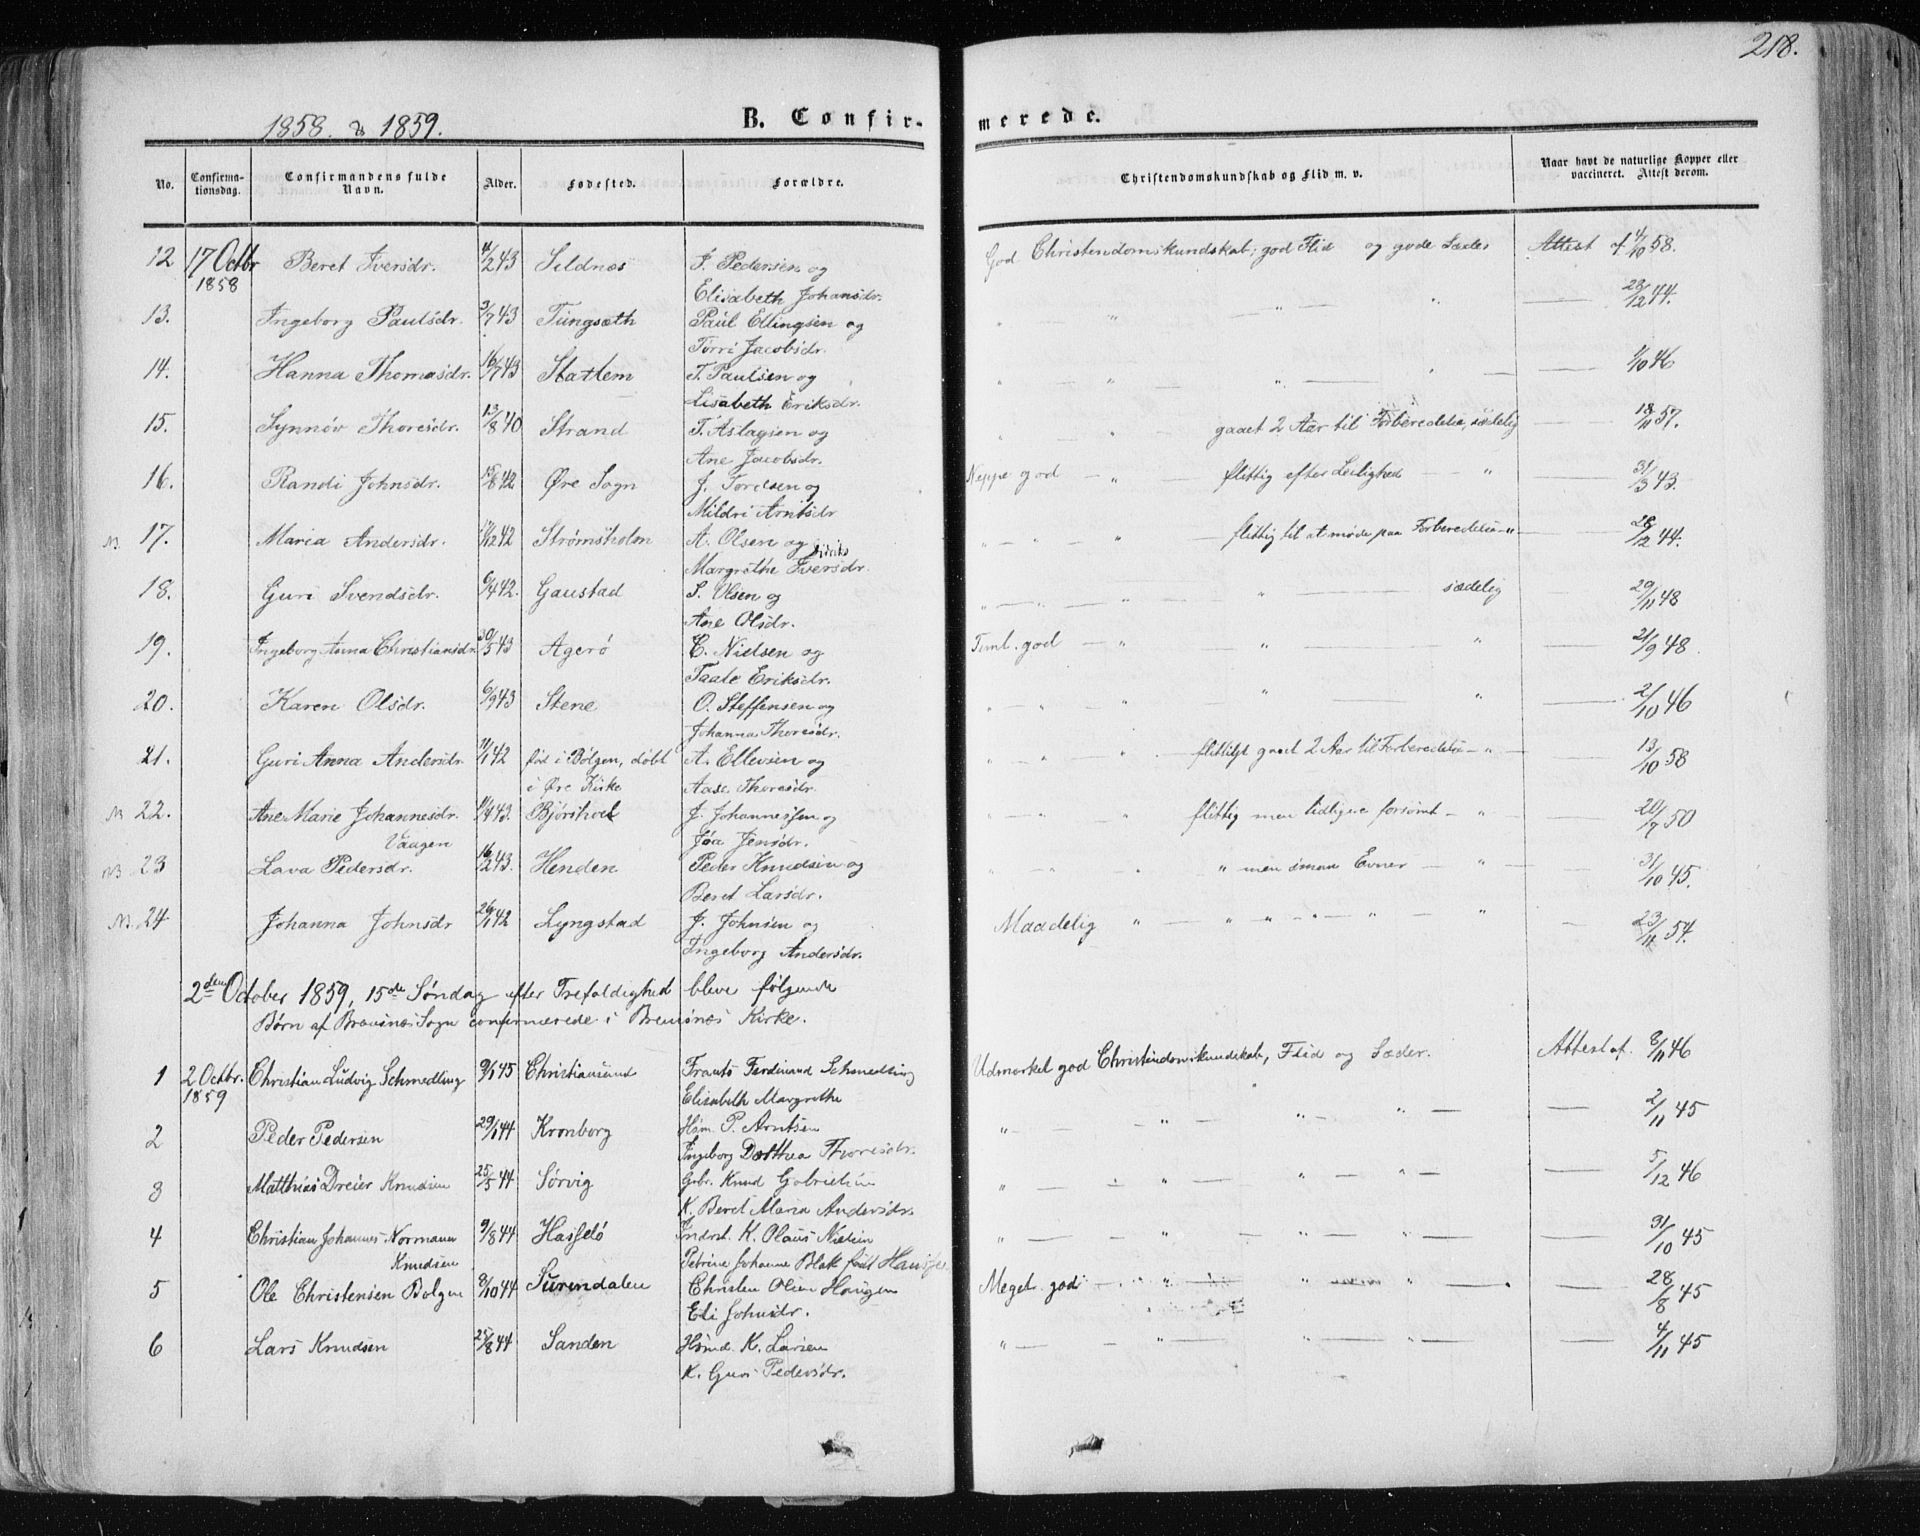 218.
1858. & 1859.
B. Confirmerede.
No. Confirmationsdag. Confirmandens fulde Navn. Alder. Fødested. Forældre. Christendomskundskab og Flid m. v. Naar havt de naturlige Kopper eller vaccineret. Attest derom.
12 17 Octbr 1858 Beret Iversdr. 4/2 43 Sildnes I. Pedersen og God Christendomskundskab, god Flid og gode Sæder Attest af 4/10 58.
Elisabeth Johansdr.
13. Ingeborg Paulsdr. 3/7 43 Tungsæth Paul Ellingsen og " " " " — 23/12 44.
Torri Jacobsdr.
14. Hanna Thomasdr. 16/7 43 Stattem T. Paulsen og " " " — " — 1/10 46
Lisabeth Eriksdr.
15. Synnøv Thoresdr. 13/8 40 Strand T. Aslagsen og " " — gaaet 2 Aar til Forberedelse, sædelig — 18/11 57.
Ane Jacobsdr.
16. Randi Johnsdr. 15/8 42 Øre Sogn J. Toresen og Neppe god — " — flittig efter Leilighed — " — 31/3 43.
Mildri Arntsdr
NB. 17. Maria Andersdr. 11/12 42 Strømsholm A. Olsen og " — " — flittig til at møde paa Forberedelse — " — 28/12 44.
Margrethe Iversdr.
18. Guri Svendsdr. 6/4 42. Gaustad S. Olsen og " — " — " — " sædelig — 29/11 48
Ane Olsdr.
19. Ingeborg Anna Christiansdr. 30/5 43 Agerø C. Nielsen og Teml. god — " — " — " — 21/9 48.
Taale Eriksdr.
20. Karen Olsdr. 6/9 43 Stene O. Steffensen og " — " " — " " — 2/10 46
Johanna Thoresdr.
21. Guri Anna Andersdr. 11/1 42 født i Bolgen, døbt A. Ellevsen og " — " " — flittigt gaaet 2 Aar til Forberedelse — " — 13/10 58
i Øre Kirke Aase Thoresdr.
NB 22. Ane Marie Johannesdr. 11/4 43. Bjørshoel J. Johannessen og " — " " flittig men tidligere forsømt — " — 20/7 50
Vaagen Jøa Jensdr.
NB 23 Lava Pedersdr. 16/2 43. Henden Peder Knudsen og " — " " " men smaa Evner — " — 31/10 45.
Beret Larsdr.
NB. 24 Johanna Johnsdr 26/1 42 Lyngstad J. Johnsen og Maadelig " — " " — " — " — " — 23/11 54.
Ingeborg Andersdr.
2den October 1859, 15de Søndag efter Trefoldighed bleve følgende
Børn af Bremsnes Sogn confirmerede i Bremsnes Kirke.
1 2 Octbr. 1859 Christian Ludvig Schmedling 9/1 45 Christiansund Frants Ferdinand Schmedling Udmærket god Christendomskundskab, Flid og Sæder. Attest af. 8/11 46
Elisabeth Margrethe
2 Peder Pedersen 29/1 44 Kronborg Hsm. P. Arntsen " — " — " — " — 2/11 45
Ingeborg Dorthea Thoresdr.
3 Matthias Dreier Knudsen 25/5 44 Sørvig Gbr. Knud Gabrielsen " — " — " — " — 5/12 46
K. Beret Maria Andersdr.
4 Christian Johannes Normann 9/8 44 Hasselø Indrst. K. Olaus Nielsen " — " — " — " — 31/10 45
Knudsen Petrine Johanne Blak født
5 Ole Christensen Bolgen 8/10 44 Surendalen Christen Olsen Haugen Meget god — " — " — " — 28/8 45
Eli Johnsdr.
6 Lars Knudsen 25/8 44 Sanden Hsmd. K. Larsen " — " — " — " — 4/11 45
K. Guri Pedersdr.